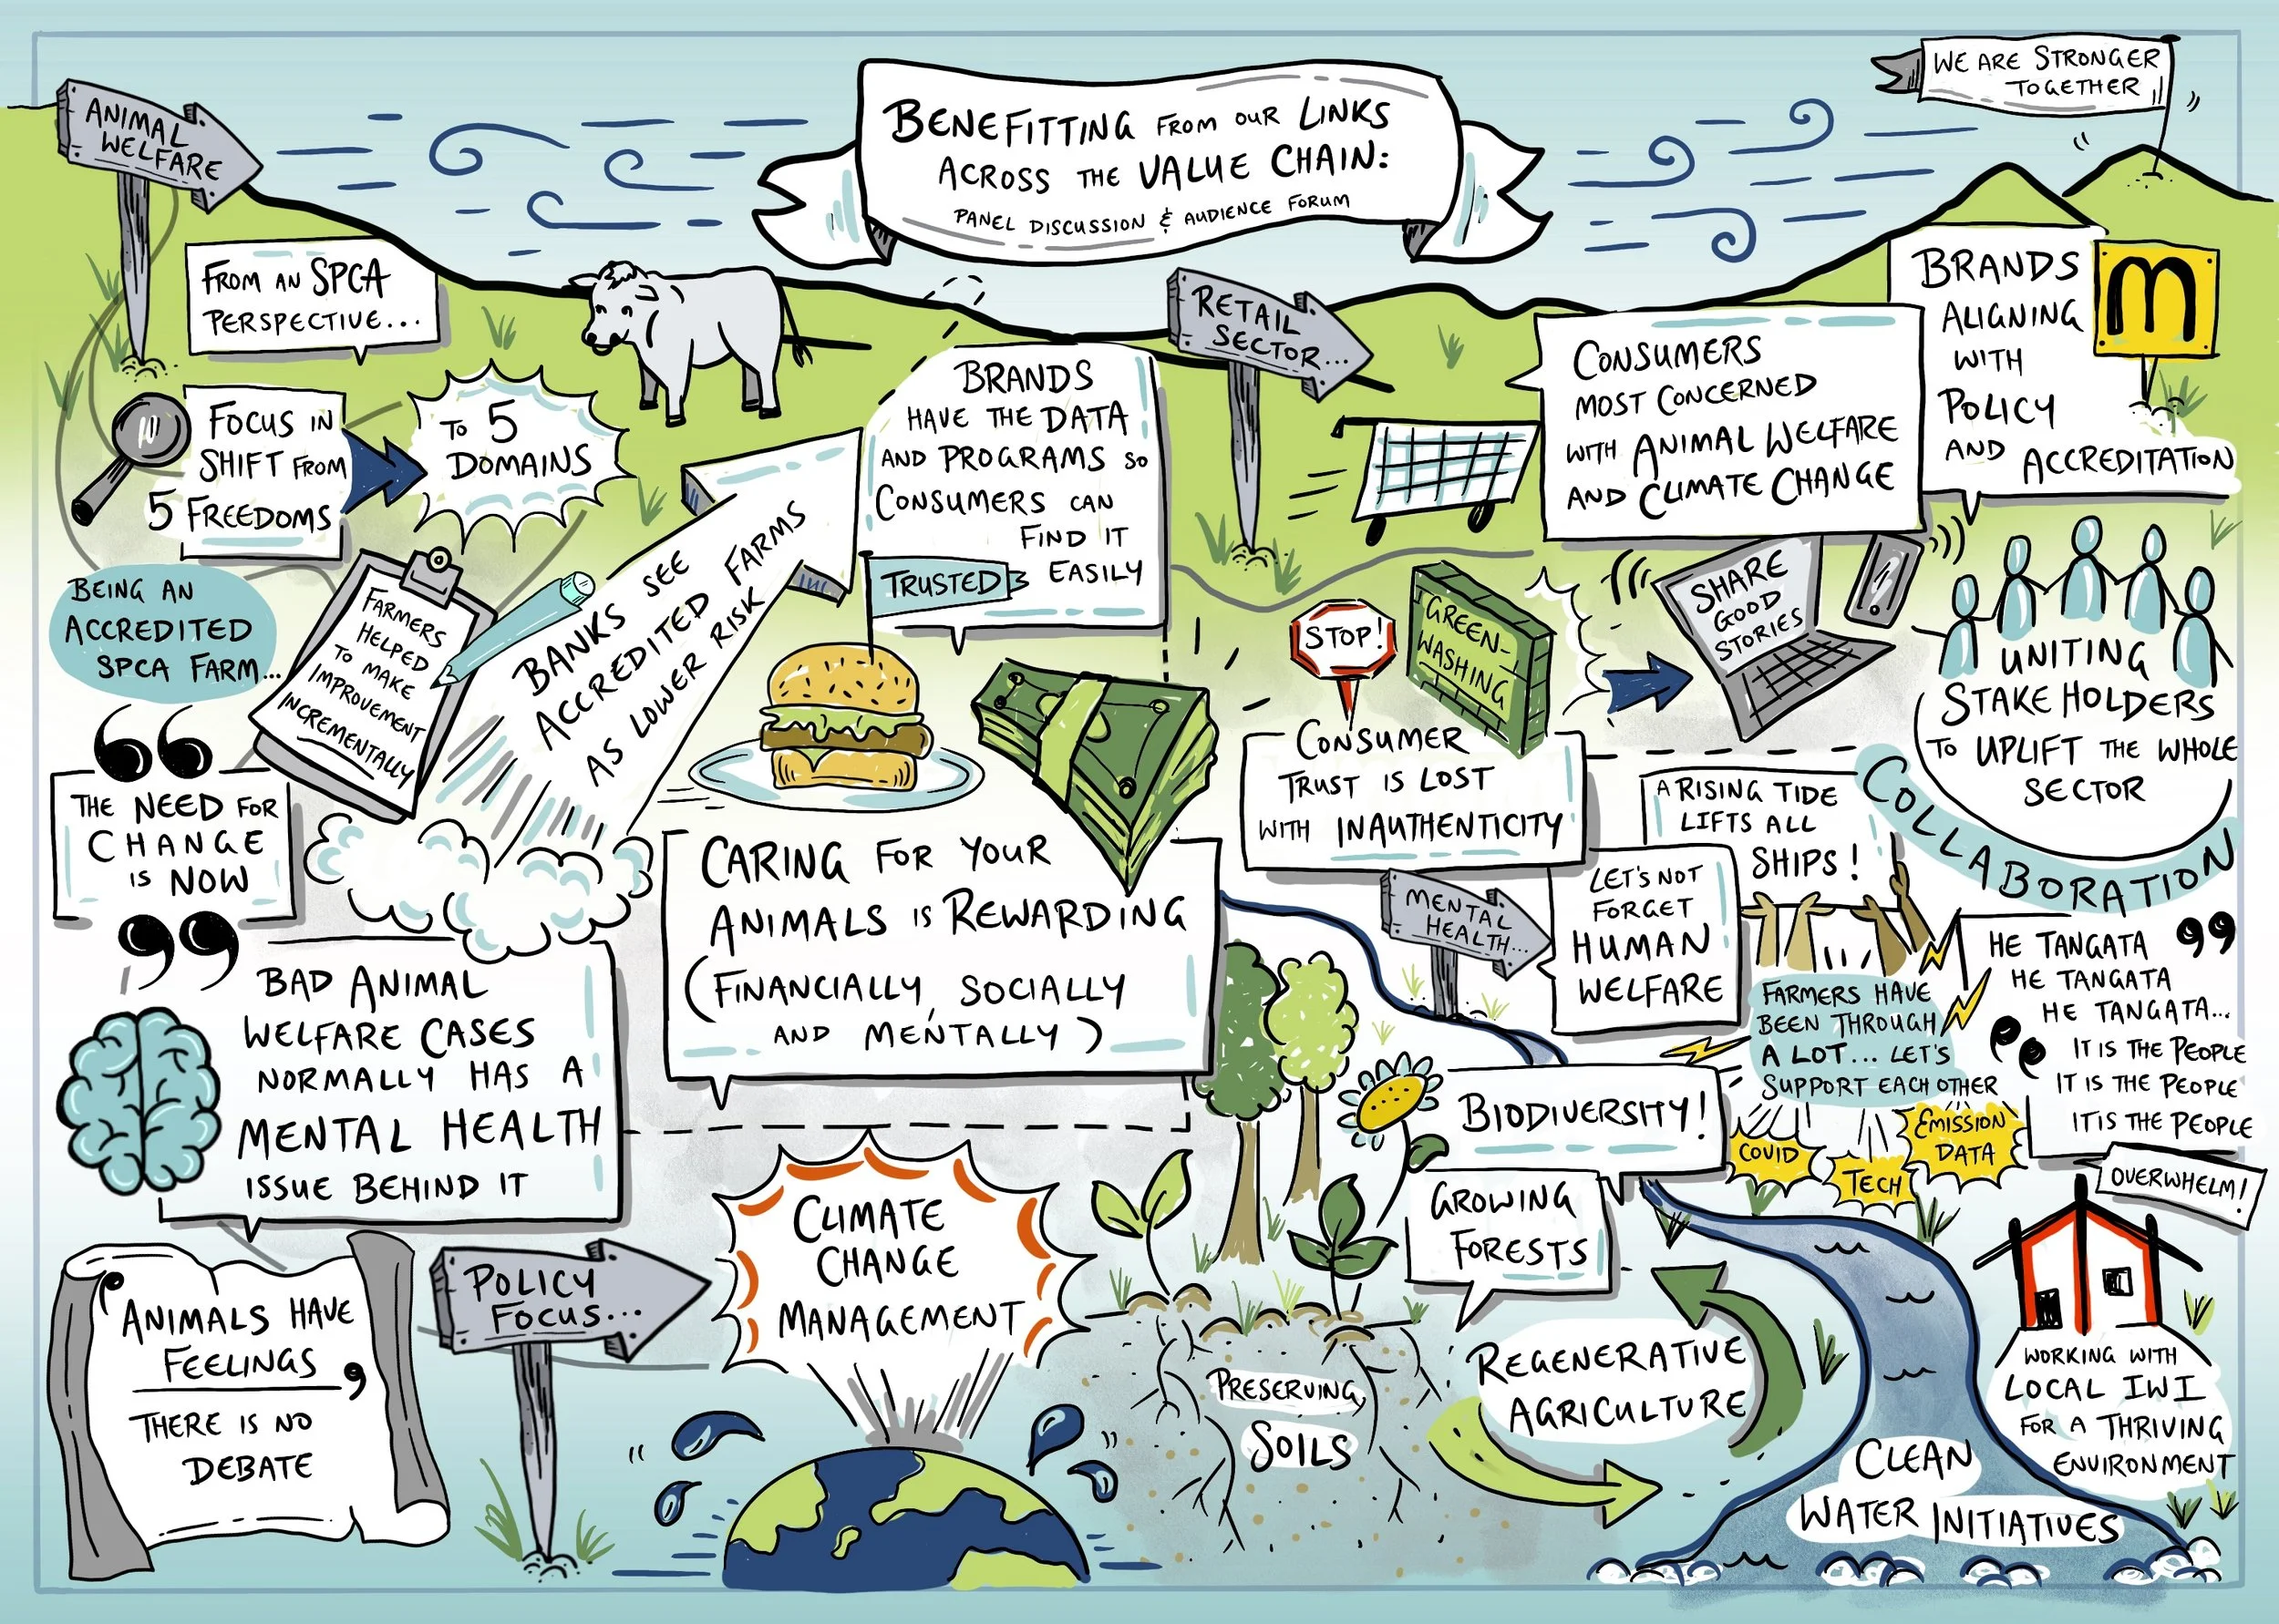 BENEFITTING FROM OUR LINKS
ACROSS THE VALUE CHAIN:
PANEL DISCUSSION & AUDIENCE FORUM
WE ARE STRONGER
TOGETHER
ANIMAL
WELFARE
FROM AN SPCA
PERSPECTIVE...
FOCUS IN
SHIFT FROM
5 FREEDOMS
TO 5
DOMAINS
BEING AN
ACCREDITED
SPCA FARM...
FARMERS
HELPED
TO MAKE
IMPROVEMENT
INCREMENTALLY
BANKS SEE
ACCREDITED FARMS
AS LOWER RISK
“
THE NEED FOR
CHANGE
IS NOW
”
BAD ANIMAL
WELFARE CASES
NORMALLY HAS A
MENTAL HEALTH
ISSUE BEHIND IT
‘ANIMALS HAVE
FEELINGS’
THERE IS NO
DEBATE
BRANDS
HAVE THE DATA
AND PROGRAMS SO
CONSUMERS CAN
FIND IT
EASILY
TRUSTED
CARING FOR YOUR
ANIMALS IS REWARDING
(FINANCIALLY, SOCIALLY
AND MENTALLY)
RETAIL
SECTOR...
CONSUMERS
MOST CONCERNED
WITH ANIMAL WELFARE
AND CLIMATE CHANGE
BRANDS
ALIGNING
WITH
POLICY
AND ACCREDITATION
M
STOP!
GREEN-
WASHING
CONSUMER
TRUST IS LOST
WITH INAUTHENTICITY
SHARE
GOOD
STORIES
UNITING
STAKEHOLDERS
TO UPLIFT THE WHOLE
SECTOR
COLLABORATION
A RISING TIDE
LIFTS ALL
SHIPS!
MENTAL
HEALTH...
LET'S NOT
FORGET
HUMAN
WELFARE
FARMERS HAVE
BEEN THROUGH
A LOT... LET'S
SUPPORT EACH OTHER
COVID
TECH
EMISSION
DATA
OVERWHELM!
HE TANGATA ”
HE TANGATA
HE TANGATA...
“ IT IS THE PEOPLE
IT IS THE PEOPLE
IT IS THE PEOPLE
POLICY
FOCUS...
CLIMATE
CHANGE
MANAGEMENT
BIODIVERSITY!
GROWING
FORESTS
PRESERVING
SOILS
REGENERATIVE
AGRICULTURE
CLEAN
WATER INITIATIVES
WORKING WITH
LOCAL IWI
FOR A THRIVING
ENVIRONMENT